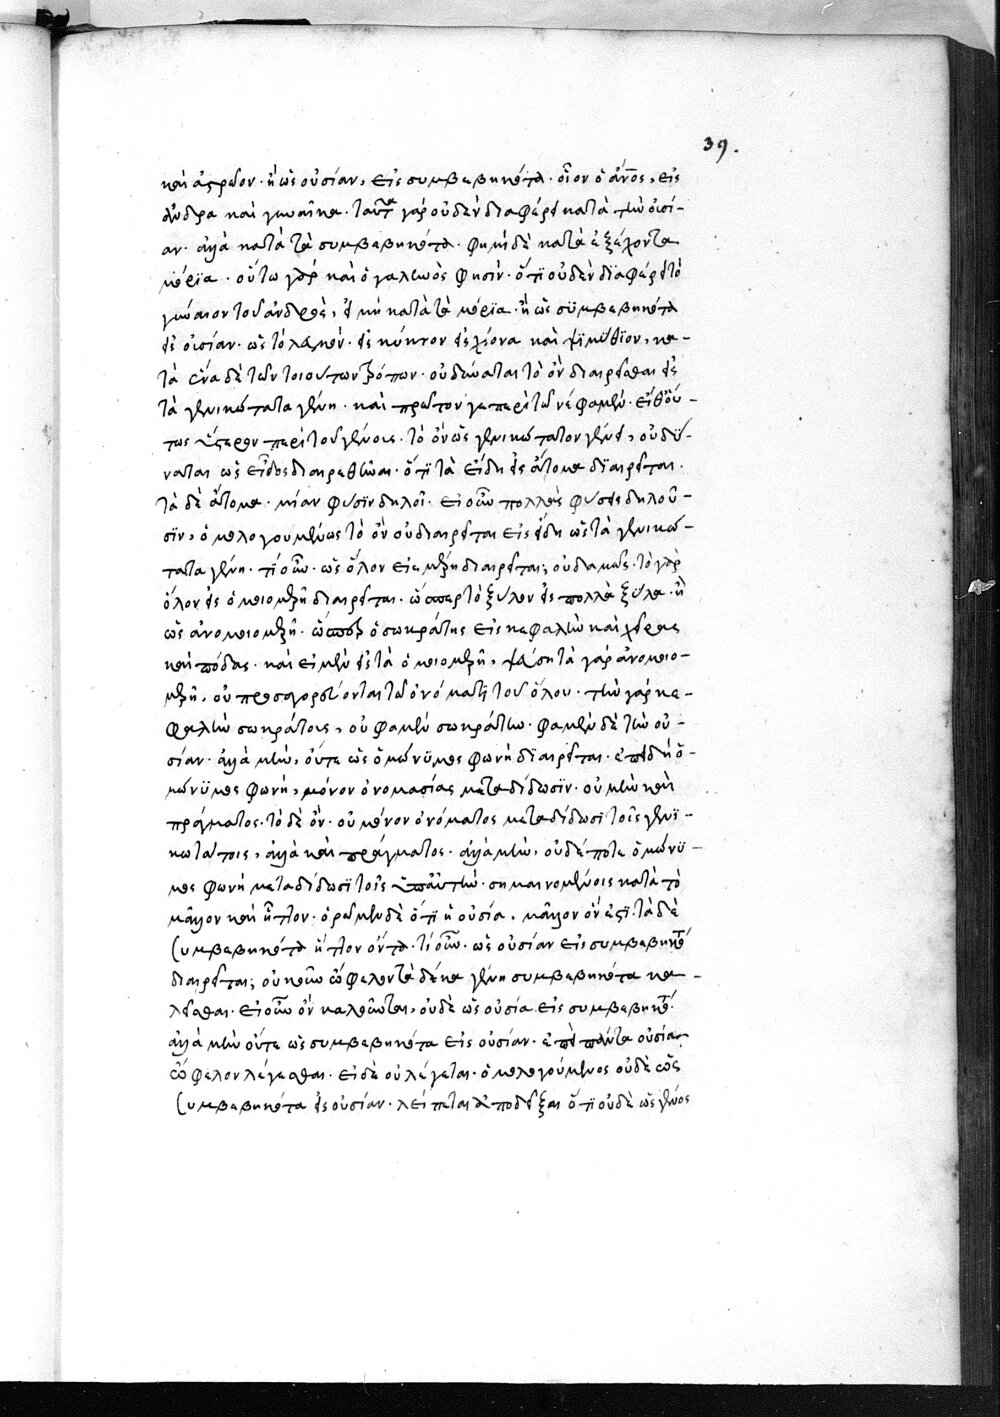 39.
καὶ ἄστρωον· ἢ ὡς οὐσίαν, εἰς συμβεβηκότα· οἷον ὁ ἄν̅ο̅ς, εἰς
ἄνδρα καὶ γυναῖκα· ταῦτα γὰρ οὐδὲν διαφέρει κατὰ τὴν οὐσί-
αν· ἀλλὰ κατὰ τὰ συμβεβηκότα· φημὶ δὲ κατὰ ἐξέχοντα
μόρϊα· οὕτω γὰρ καὶ ὁ γαληνὸς φησὶν· ὅτϊ οὐδὲν διαφέρει τὸ
γύναιον τοῦ ἀνδρὸς, εἰ μὴ κατὰ τὰ μόρϊα· ἢ ὡς συμβεβηκότα
εἰς οὐσίαν· ὡς τὸ λευκὸν· εἰς κύκνον εἰς χϊόνα καὶ ψϊμύθϊον, κα-
τὰ ἕνα δὲ τῶν τοιούτων τρόπων· οὐ δύναται τὸ ὂν διαιρεῖσθαι εἰς
τὰ γενικώτατα γένη· καὶ πρῶτον γε περὶ τῶν ἓξ φαμὲν· εἶθ' οὕ-
τως ὕστερον περὶ τοῦ γένους· τὸ ὂν ὡς γενικώτατον γένος, οὐ δύ-
ναται ὡς εἶδος διαιρεθῆναι· ὅτϊ τὰ εἴδη εἰς ἄτομα διαιρεῖται·
τὰ δὲ ἄτομα· μίαν φύσϊν δηλοῖ· εἰ οὖν πολλὰς φύσεις δηλοῦ-
σϊν, ὁμολογουμένως τὸ ὂν οὐ διαιρεῖται εἰς εἴδη ὡς τὰ γενικώ-
τατα γένη· τί οὖν· ὡς ὅλον εἰς μέρη διαιρεῖται; οὐδαμῶς· τὸ γὰρ
ὅλον εἰς ὁμοιομερῆ διαιρεῖται· ὥσπερ τὸ ξύλον εἰς πολλὰ ξύλα· ἢ
ὡς ἀνομοιομερῆ· ὥσπερ ὁ σωκράτης εἰς κεφαλὴν καὶ χεῖρας
καὶ πόδας· καὶ εἰ μὲν εἰς τὰ ὁμοιομερῆ, ψεύση τὰ γὰρ ἀνομοιο-
μερῆ, οὐ προσαγορεύονται τῶ ὀνόματϊ τοῦ ὅλου· τὴν γὰρ κε-
φαλὴν σωκράτους, οὐ φαμὲν σωκράτην· φαμὲν δὲ τὴν οὐ-
σίαν· ἀλλὰ μὴν, οὔτε ὡς ὁμώνϋμος φωνὴ διαιρεῖται· ἐπειδὴ ὁ-
μώνϋμος φωνὴ, μόνον ὀνομασίας μεταδίδωσϊν· οὐ μὴν καὶ
πράγματος· τὸ δὲ ὂν· οὐ μόνον ὀνόματος μεταδίδωσϊ τοῖς γενϊ-
κωτάτοις, ἀλλὰ καὶ πράγματος· ἀλλὰ μὴν, οὐδέποτε ὁμώνϋ-
μος φωνὴ μεταδίδωσϊ τοῖς ὑπ' αὐτὴν· σημαινομένοις κατὰ τὸ
μᾶλλον καὶ ἧττον· ὁρῶμεν δὲ ὅτϊ ἡ οὐσία, μᾶλλον ὄν ἐστϊ· τὰ δὲ
συμβεβηκότα ἧττον ὄντα· τί οὖν· ὡς οὐσίαν εἰς συμβεβηκότα
διαιρεῖται; οὐκοῦν ὤφελον τὰ δέκα γένη συμβεβηκότα κα-
λεῖσθαι· εἰ οὖν ὂν καλοῦνται, οὐδὲ ὡς οὐσία εἰς συμβεβηκότα·
ἀλλὰ μὴν οὔτε ὡς συμβεβηκότα εἰς οὐσίαν· ἐπεὶ πάντα οὐσίαι
ὤφελον λέγεσθαι· εἰ δὲ οὐ λέγεται· ὁμολογούμενος οὐδὲ ὡς
συμβεβηκότα εἰς οὐσίαν· λείπεται ἀποδεῖξαι ὅτϊ οὐδὲ ὡς γένος